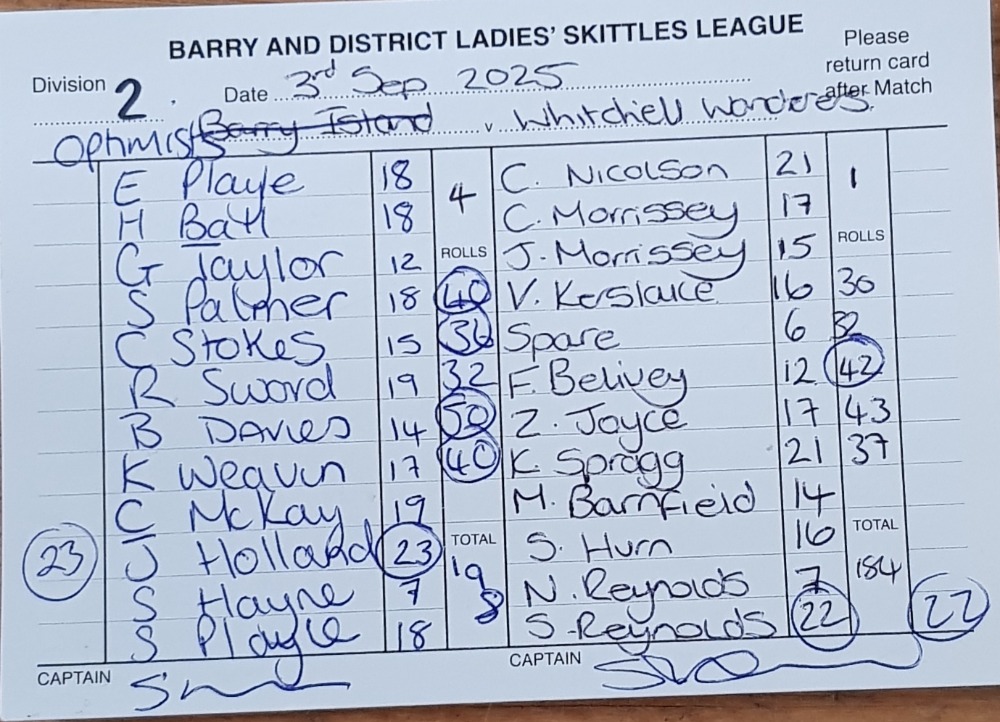 BARRY AND DISTRICT LADIES' SKITTLES LEAGUE
Please return card after Match
Division 2. Date 3rd Sep 2025
Optimists Barry Island v Whitchell Wanderes.
E Playle 18 4 C. Nicolson 21 1
H Batl 18 C. Morrissey 17
G Taylor 12 ROLLS J. Morrissey 15 ROLLS
S Palmer 18 40 V. Kerslake 16 30
C Stokes 15 36 Spare 6 32
R Sword 19 32 F. Belivey 12 42
B DAVIES 14 50 Z. Joyce 17 43
K Weavin 17 40 K. Spragg 21 37
C McKay 19 M. Barnfield 14
23 J Holland 23 TOTAL S. Hurn 16 TOTAL
S Hayne 7 198 N. Reynolds 7 184
S Playle 18 S. Reynolds 22 22
CAPTAIN CAPTAIN